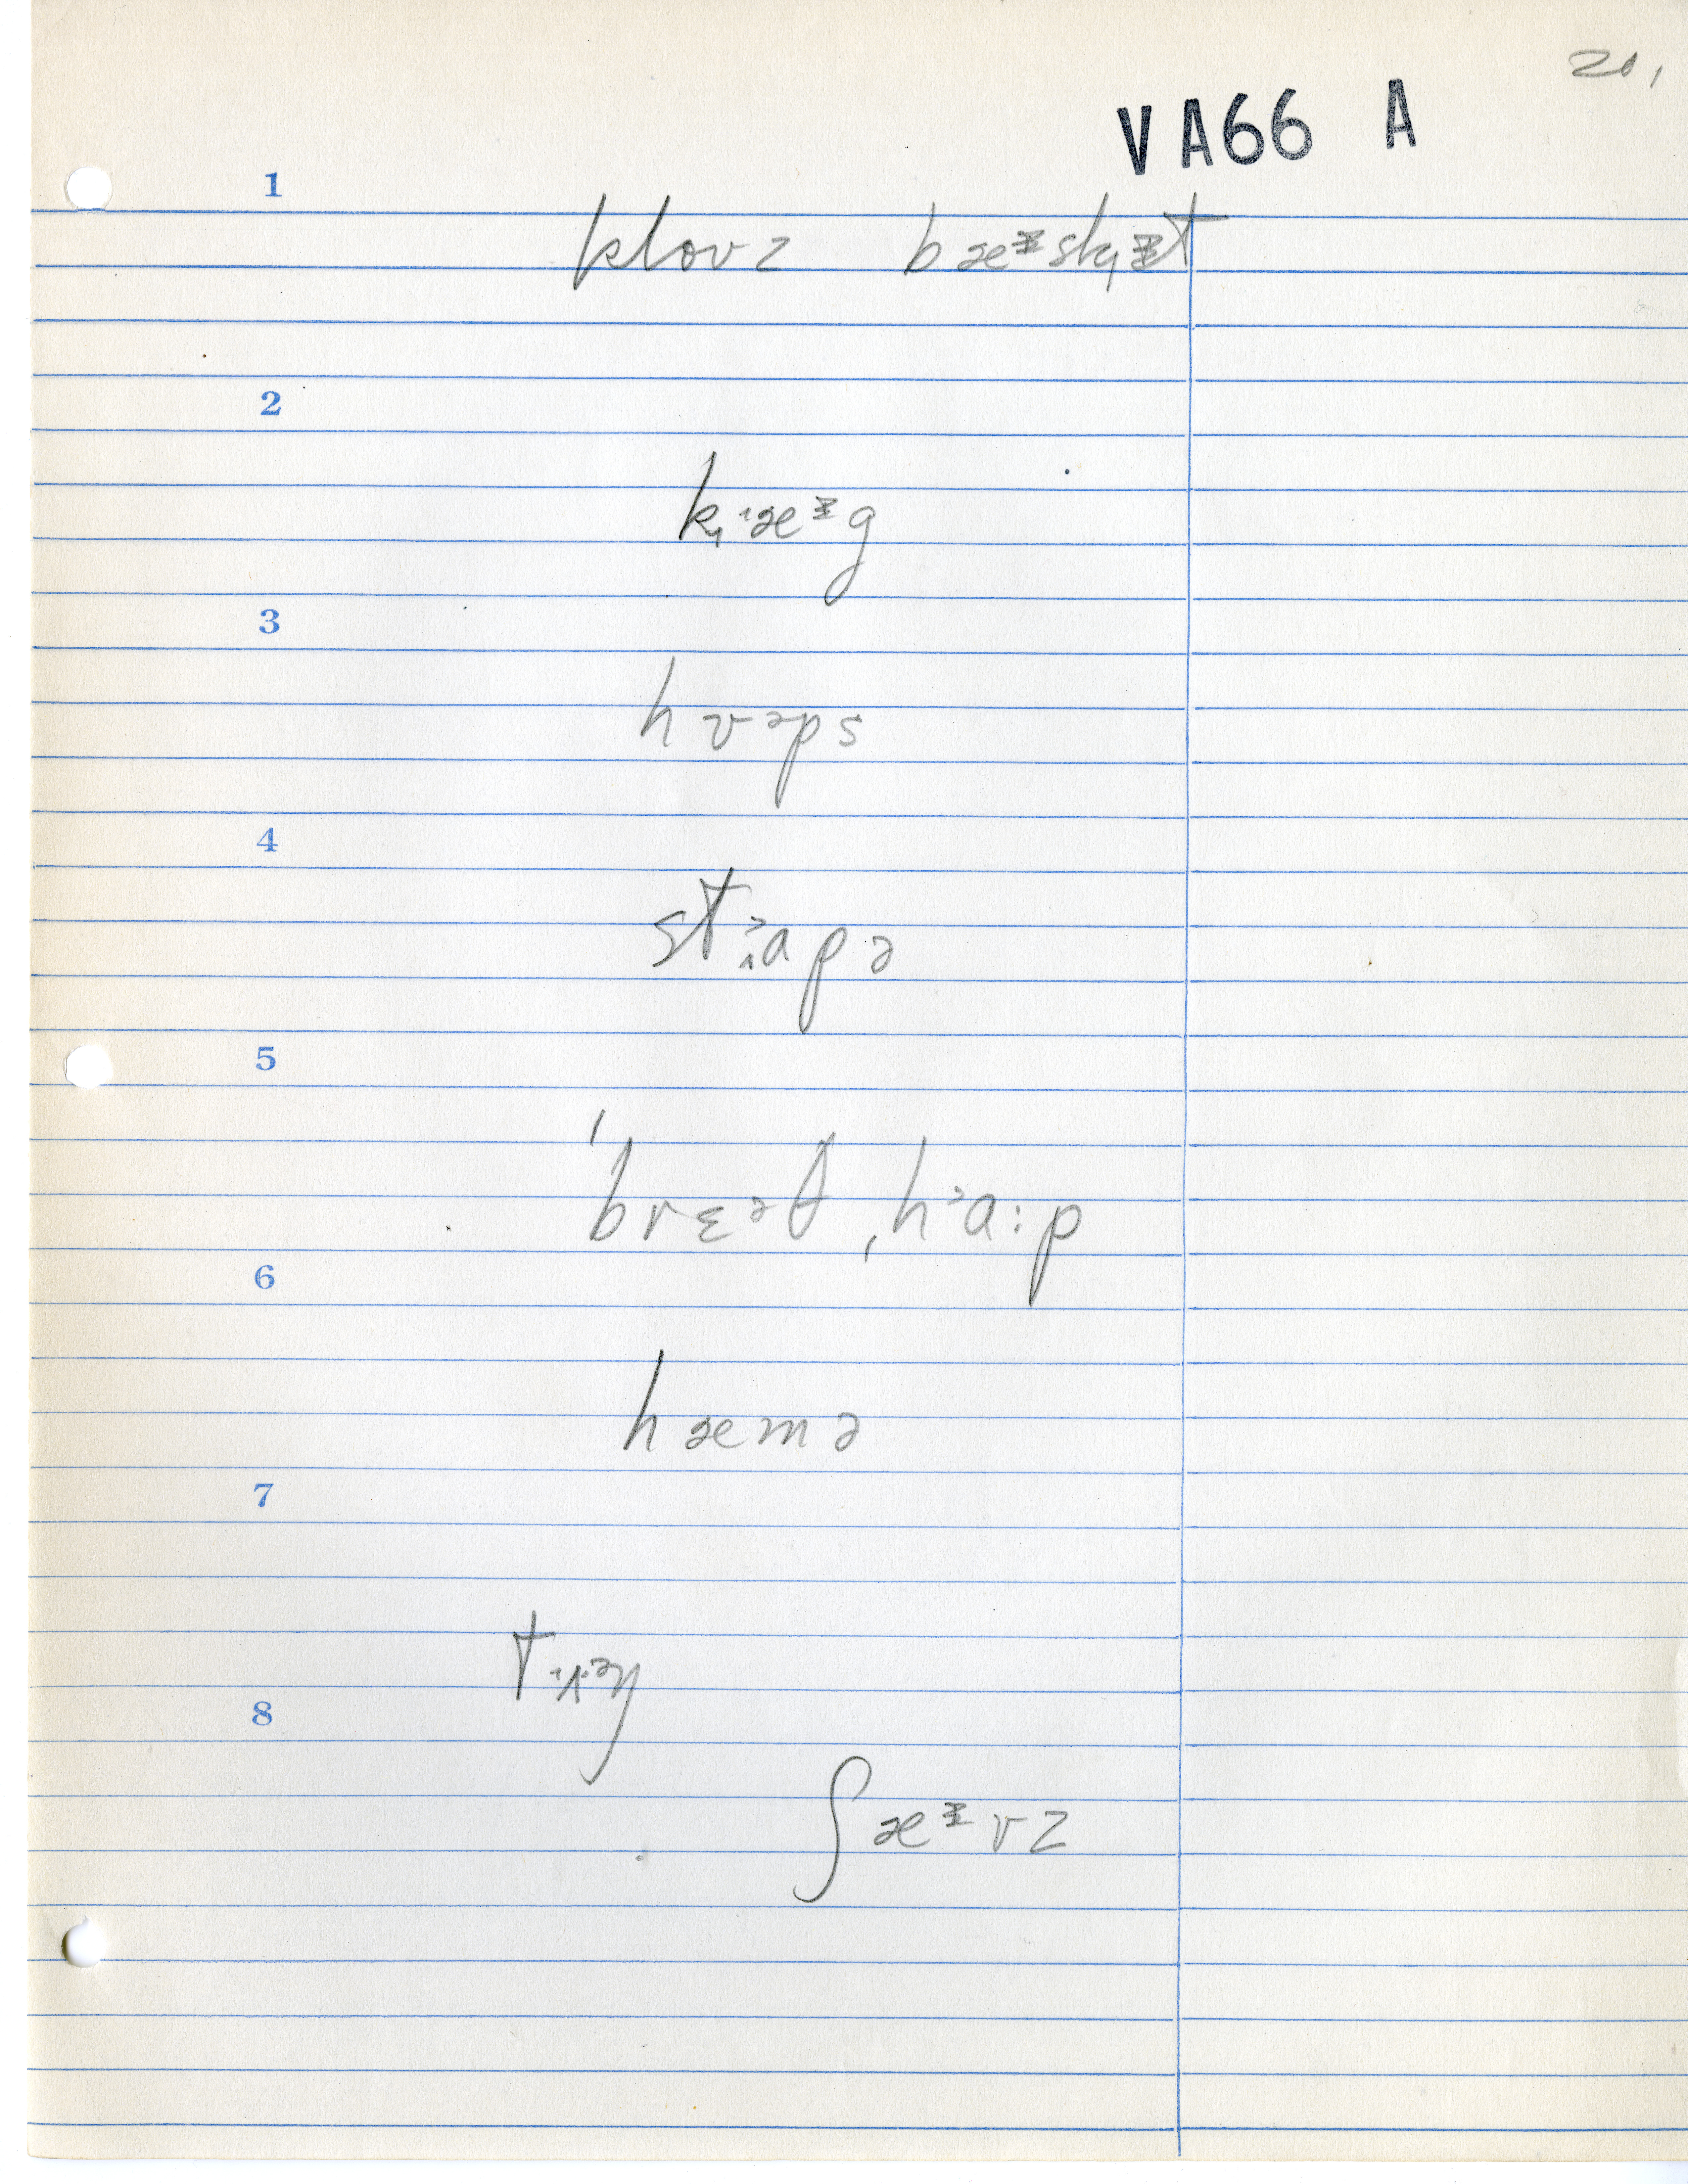 20,
VA66 A
1
kloʊz bæᵻ̵sk̟ᵻ̵t
2
k̟ᶦæᵻ̵g
3
hʊəps
4
stᵊapə
5
ˈbrɛᵊθ ˌhᵊɑ:p
6
hæmə
7
8
ʃæᵻ̵vz